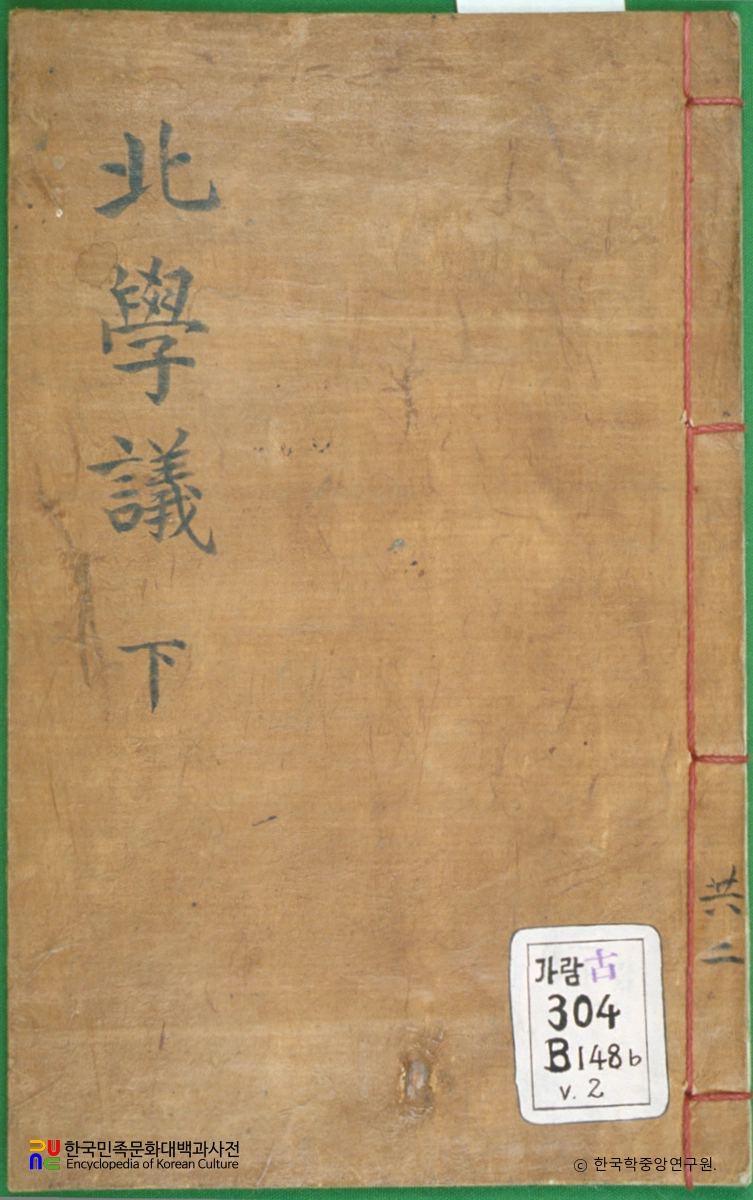 北學議 下
共二
가람 古
304
B148b
v. 2
한국민족문화대백과사전
Encyclopedia of Korean Culture
© 한국학중앙연구원.